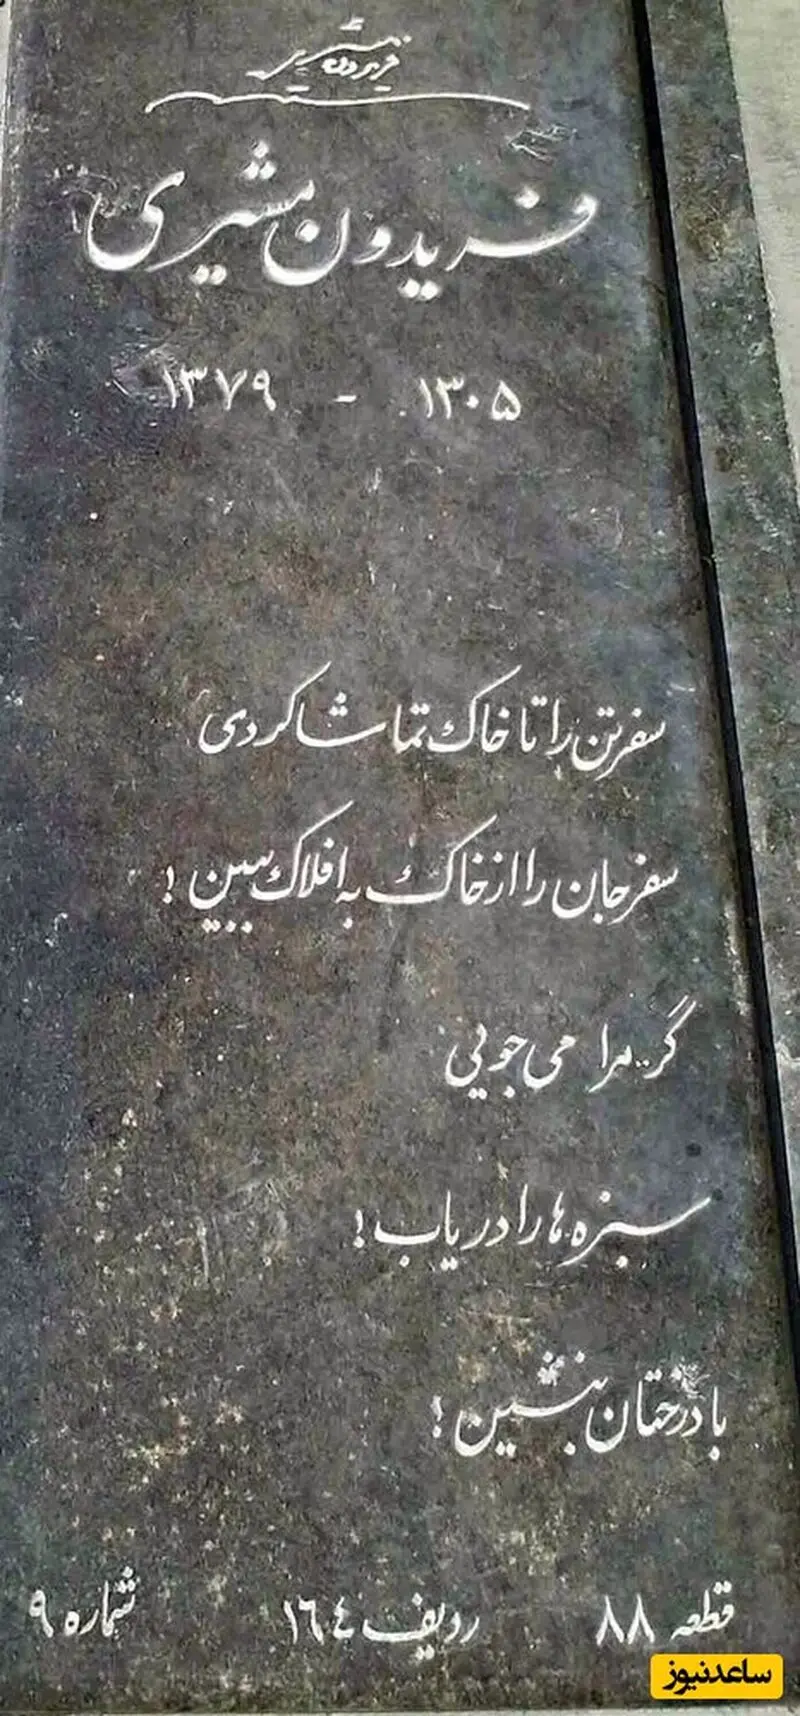 فریدون مشیری
فریدون مشیری
۱۳۰۵ - ۱۳۷۹
سفر تن را تا خاک تماشا کردی
سفر جان را از خاک به افلاک ببین !
گر مرا می جویی
سبزه ها را دریاب !
با درختان بنشین !
قطعه ۸۸ ردیف ۱٦٤ شماره ۹
ساعدنیوز